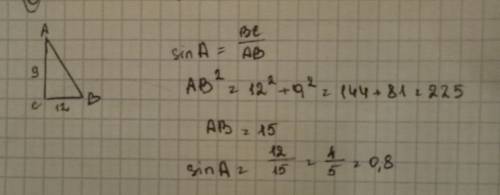 A
9
C 12 B
sin A = BC/AB
AB² = 12² + 9² = 144 + 81 = 225
AB = 15
sin A = 12/15 = 4/5 = 0,8